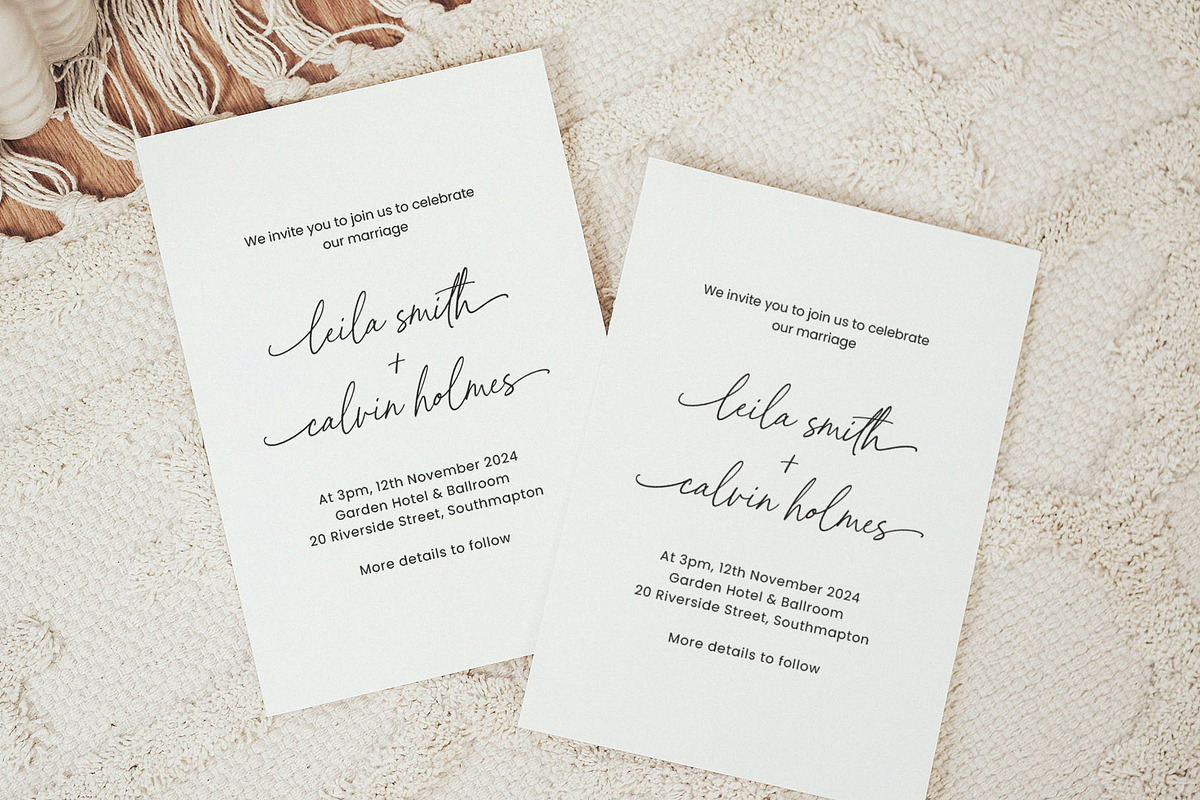 We invite you to join us to celebrate
our marriage
leila smith
+
calvin holmes
At 3pm, 12th November 2024
Garden Hotel & Ballroom
20 Riverside Street, Southmapton
More details to follow
We invite you to join us to celebrate
our marriage
leila smith
+
calvin holmes
At 3pm, 12th November 2024
Garden Hotel & Ballroom
20 Riverside Street, Southmapton
More details to follow